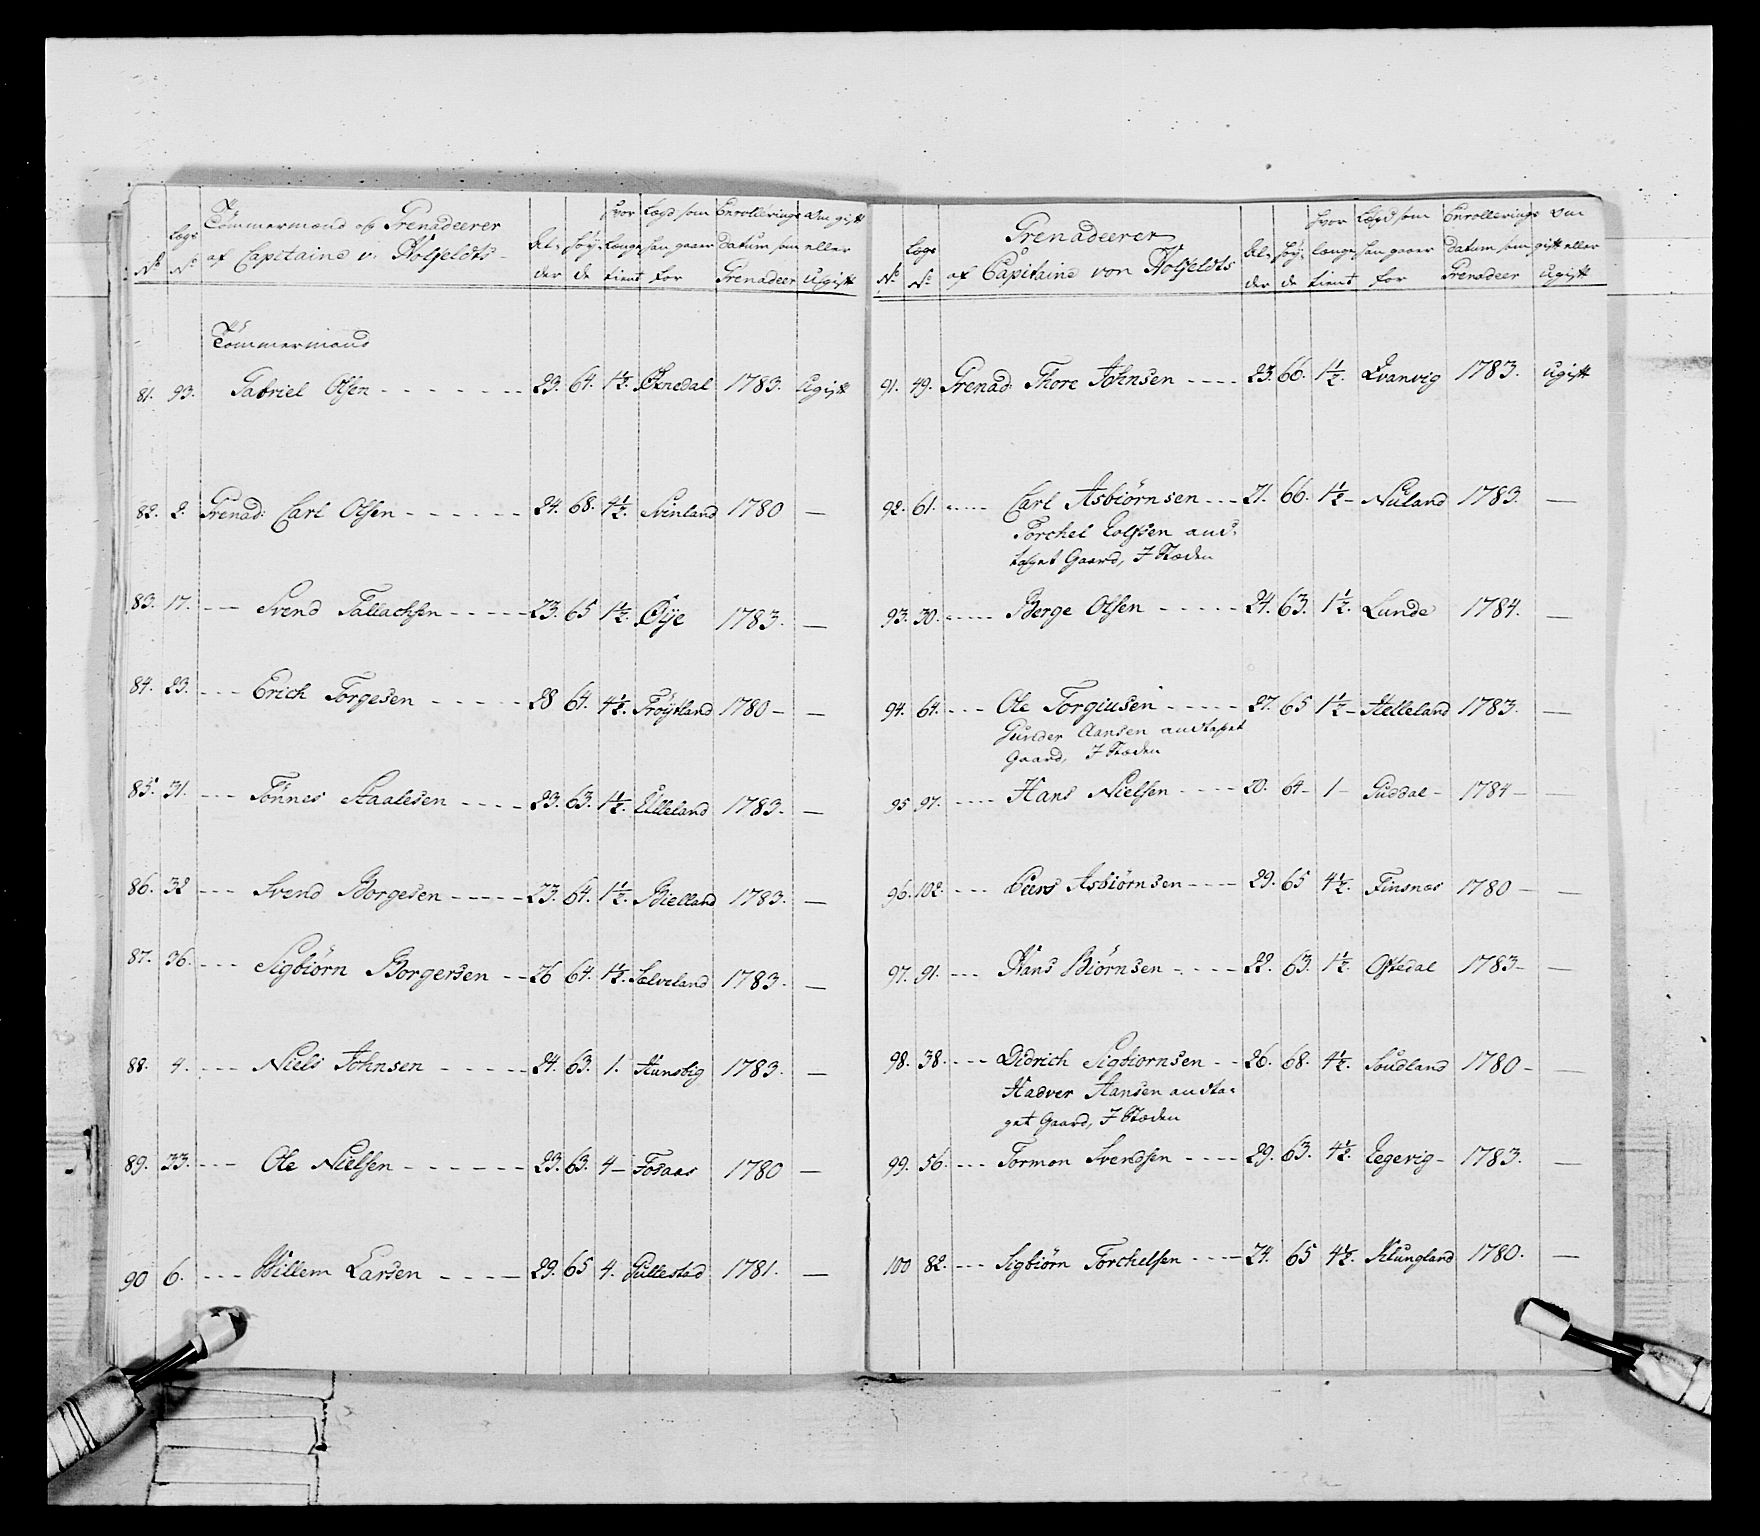 No. Legs No. Tömmermænd og Grenadeerer af Capitaine v: Holfeldts Al- der Höy- de Hvor længe tient Lægd som han gaaer for Enrollerings datum som Grenadeer Om gift eller Ugift
Tömmermænd
81. 93. Gabriel Olsen 23. 64. 1½. Øknedal 1783. Ugift
82. 2. Grenad: Carl Olsen 24. 68. 4½. Svinland 1780 —
83. 17. Svend Tallachsen 23. 65 1½. Øÿe 1783. —
84. 23. Erich Torgesen 28 64. 4½. Fröÿtland 1780 — —
85. 31. Tönnes Staalesen 23. 63. 1½. Ulleland 1783. —
86. 32 Svend Borgesen 23. 64. 1½. Bielland 1783. —
87. 36. Sigbiörn Borgersen 26 64. 1½. Sælveland 1783. —
88. 4. Niels Johnsen 24. 63. 1. Hunsbig 1783. —
89. 33. Ole Nielsen 23. 63. 4 — Fosaas 1780 —
90 6. Willem Larsen 29. 65 4. Gullestad 1781. —
No. Legs No. Grenadeerer af Capitaine von Holfeldts Al- der Höy- de Hvor længe tient Lægd som han gaaer for Enrollerings datum som Grenadeer Om gift eller ugift
91. 49. Grenad. Thore Johnsen 23. 66. 1½. Qvanvig 1783. ugift
92. 61. Carl Asbiörnsen 21. 66. 1½ — Nuland 1783. —
Torchel Eolfsen and-
taget Gaard, I Stæden
93. 30. Berge Olsen 24. 63. 1½. Lunde 1784. —
94. 64. Ole Torgiusen 27. 65 1½ — Helleland 1783. —
Gunder Aansen andtaget
Gaard, I Stæden
95 97. Hans Nielsen 20. 64 — 1 — Guddal — 1784 —
96. 102. Asbiörnsen 29. 65 4½. Finsnes 1780 — —
97. 91. Hans Biörnsen 22. 63. 1½. Oftedal 1783 — —
98. 38. Didrich Sigbiornsen 26. 68. 4½. Soudland 1780 — —
Hadver Hansen andta-
get Gaard, I Stæden
99. 56. Tormon Svendsen 29. 63. 4½. Eegevig — 1783. —
100 82. Sigbiörn Torchelsen 24. 65 4½. Klungland 1780. —